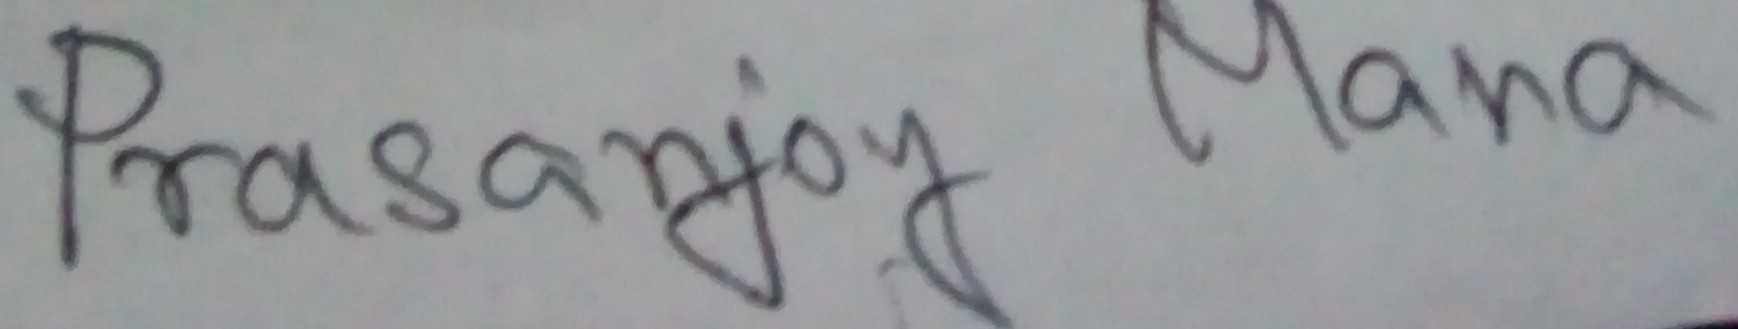 Prasanjoy Mana